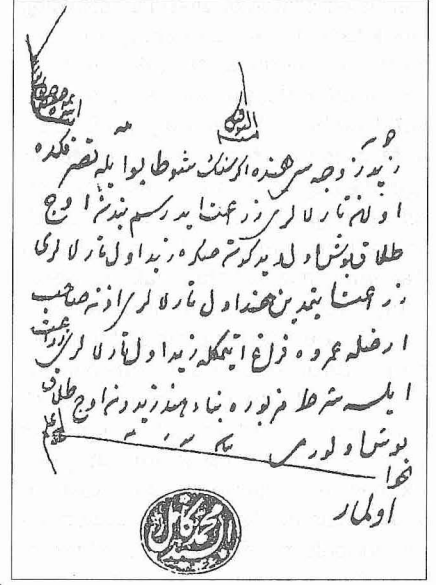 التوفيق منه
زيد زوجه سى هنده اكر سنك شو طابو ايله تصرفكده
اولان تارلالرى زراعت ايدرسم بندن اوچ
طلاق بوش اول ديدكدن صكره زيد اول تارلالرى
زراعت ايتمدين هند اول تارلالرى اذن صاحب
ارضله عمروه فراغ ايتمكله زيد اول تارلالرى زراعت
ايلسه شرط مزبوره بناء هند زيددن اوچ طلاق
بوش اولورمى
اولماز
السيد محمد كامل